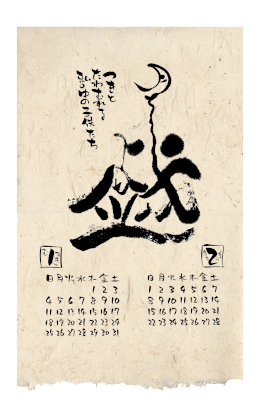 つきと
たわむれる
私のゆの子供たち
1
日月火水木金土
1 2 3
4 5 6 7 8 9 10
11 12 13 14 15 16 17
18 19 20 21 22 23 24
25 26 27 28 29 30 31
2
日月火水木金土
1 2 3 4 5 6 7
8 9 10 11 12 13 14
15 16 17 18 19 20 21
22 23 24 25 26 27 28